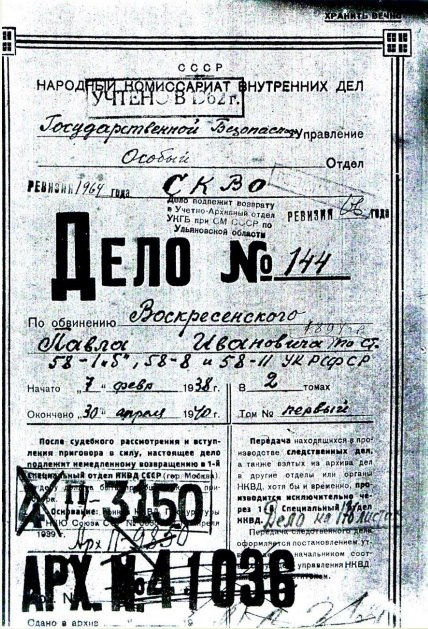 ХРАНИТЬ ВЕЧНО
СССР
НАРОДНЫЙ КОМИССАРИАТ ВНУТРЕННИХ ДЕЛ
УЧТЕНО В 1962 г.
Государственной Безопасн Управление
Особый Отдел
РЕВИЗИЯ 1964 года
СКВО
Дело подлежит возврату
в Учетно-Архивный отдел
УКГБ при СМ СССР по
Ульяновской области
РЕВИЗИЯ года
Дело № 144
По обвинению Воскресенского
Павла Ивановича по ст.
58-1"б", 58-8 и 58-11 УКРСФСР
Начато „7" февр 1938 г.
В 2 томах
Окончено „30" апреля 1940 г.
Том № первый
После судебного рассмотрения и вступ-
ления приговора в силу, настоящее дело
подлежит немедленному возвращению в 1-й
Специальный отдел НКВД СССР (гор. Москва)
Основание:
1939 г.
Передача находящихся в про-
изводстве следственных дел,
а также взятых из архива дел
в другие отделы или органы
НКВД, хотя бы и временно, про-
изводится исключительно че-
рез 1 Специальный отдел
НКВД.
Передача следственного дела
оформляется постановлением, ут-
начальником соот-
управления НКВД
Дело на листах
П-3150
Арх П
АРХ. №
41036
Сдано в архив